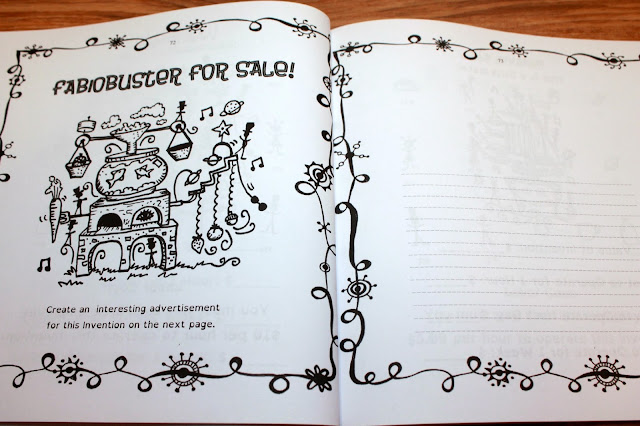 72
FABIOBUSTER FOR SALE!
Create an interesting advertisement
for this Invention on the next page.